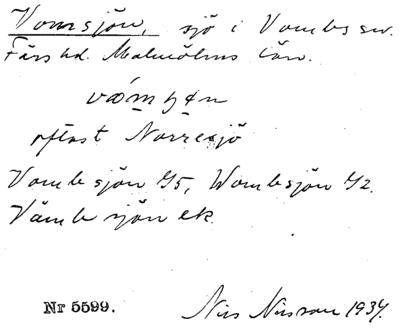 Vomsjön, sjö i Vombs sn.
Färs hd. Malmöhus län.
oftast Norresjö
Vombsjön 45, Wombsjön 42.
Vämb sjön ek.
Nr 5599. Nils Nilsson 1934.